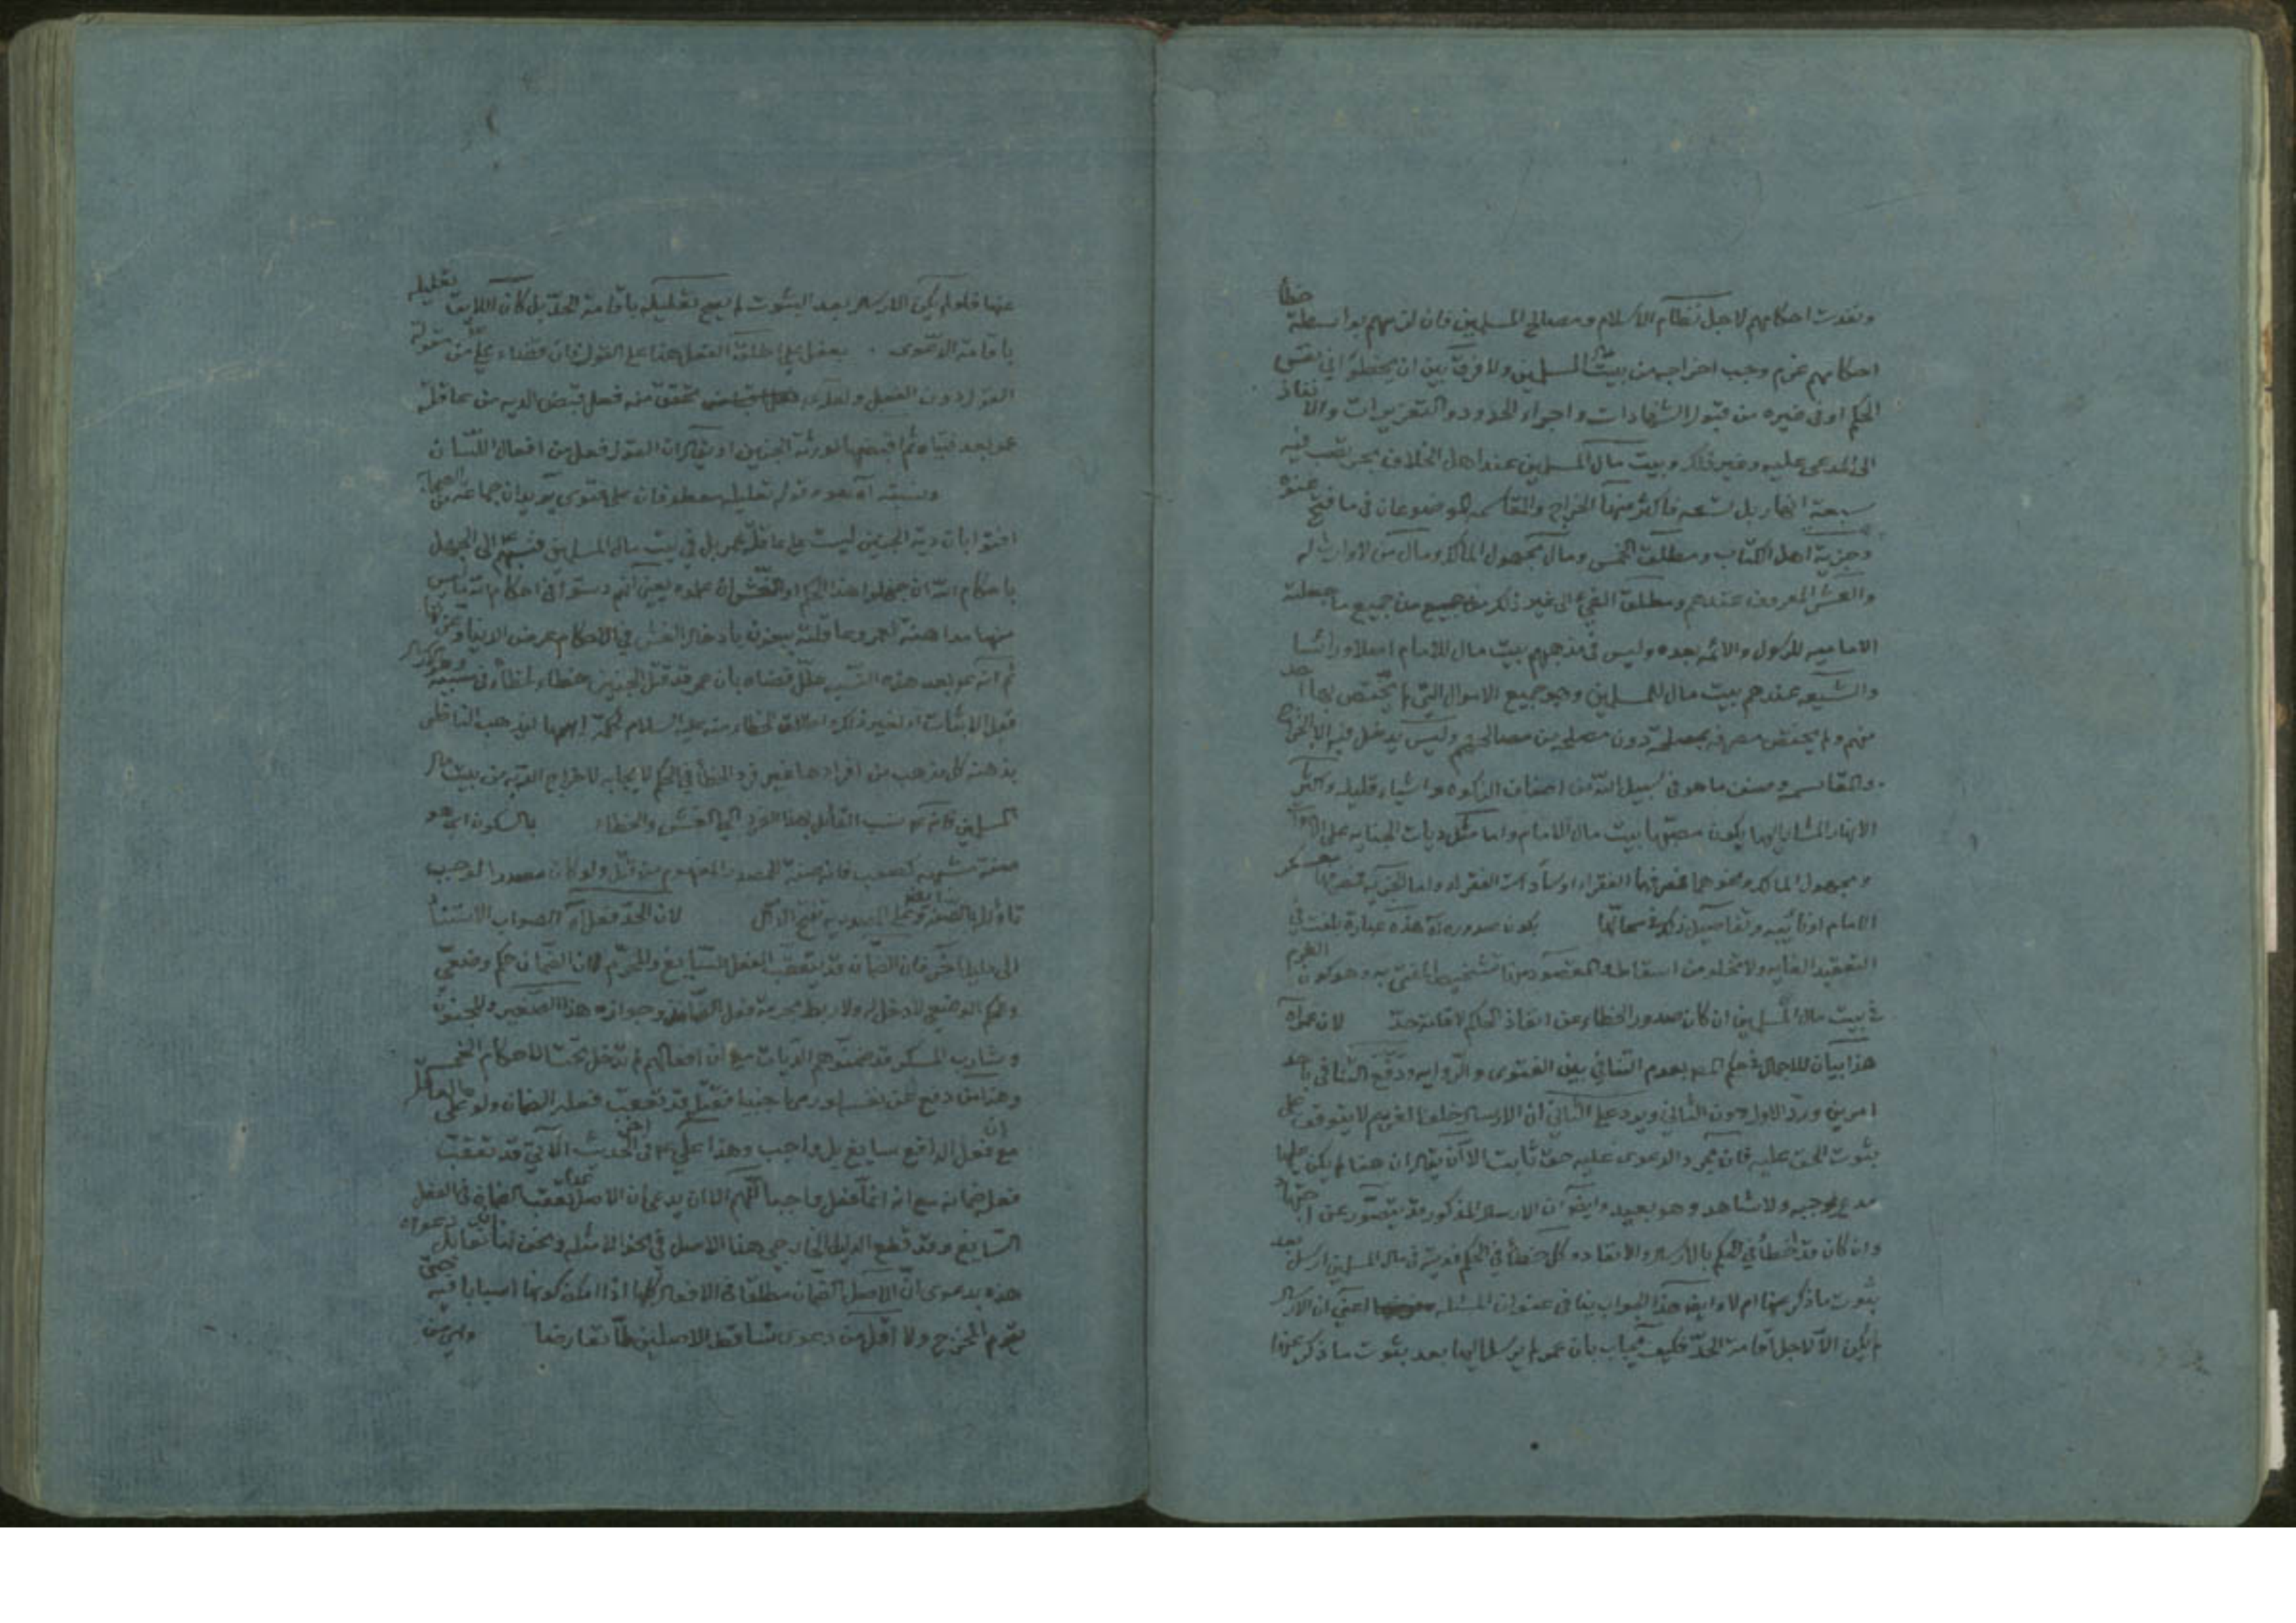 ونفذت احكامهم لاجل نظام الاسلام ومصالح المسلمين فان لزمهم بواسطة خطأ
احكامهم غرم وجب اخراجه من بيت مال المسلمين ولا فرق بين ان يخطؤا في نفس
الحكم او في غيره من قبول الشهادات واجراء الحدود والتعزيرات والانفاذ
الى المدعى عليه وغير ذلك وبيت مال المسلمين عند اهل الخلاف بحر تصب فيه
سبعة انهار بل تسعه فاكثر منها الخراج والمقاسمه الموضوعان في ما فتح عنوه
وجزية اهل الكتاب ومطلق الخمس ومال مجهول المالك ومال من لا وارث له
والعشر المعروف عندهم ومطلق الفيء الى غير ذلك من جميع ما جعلته
الاماميه للرسول والائمه بعده وليس في مذهبهم بيت مال للامام اصلا وراسا
والشيعه عندهم بيت مال للمسلمين وهو جميع الاموال التي لم يختص بها احد
منهم ولم يختص مصرفه بمصلحة دون مصلحه من مصالحهم وليس يدخل فيه الا الخراج
والمقاسمه وصنف ما هو في سبيل الله من اصناف الزكوه واشياء قليله واكثر
الانهار المشار اليها يكون مصبها بيت مال الامام واما مثل ديات الجنايه على الاموات
ومجهول المالك ونحوهما فمصرفها الفقراء او سادات الفقراء واما
الامام او نائبه وتفاصيل ذلك في محالها بكون صدوره آه هذه عبارة
التعقيد الغايه ولا تخلو من اسقاط والمقصود منها تشخيص المفتى به وهو كون الغرم
في بيت مال المسلمين ان كان صدور الخطاء عن انفاذ الحاكم لاقامة حد لان عمر آه
هذا بيان للاجمال في حكم بعدم التنافي بين الفتوى والروايه ودفع التنافي باحد
امرين ورد الاول دون الثاني ويرد على الثاني ان الارسال خلف الغريم لا يتوقف على
ثبوت الحق عليه فان مجرد الدعوى عليه حق ثابت الا ان يقال ان هنا لم يكن عليها
مدع لموجبه ولا شاهد وهو بعيد وايضا ان الارسال المذكور قد يتصور عن
وان كان قد اخطأ في الحكم بالارسال والانفاذ وكل خطأ في الحكم فديته في مال المسلمين ارسل بعد
ثبوت ما ذكر عنها ام لا وايضا هذا الجواب ينافي عنوان المسئله اعني ان الارسال
لم يكن الا لاجل اقامة الحد فكيف يجاب بان عمر لم يرسل اليها بعد ثبوت ما ذكر عنها
عنها فلو لم يكن الارسال بعد الثبوت لم يصح تعليله باقامة الحد بل كان اللايق تعليله
باقامة الدعوى بفعل علي اطلاق الفعل هنا على القول فان قضاء علي من مقولة
القول دون الفعل ولعله تحقق منه فعل قبض الديه من عاقلة
عمر بعد ثم اقبضها لورثة الجنين او يقال ان القول فعل من افعال اللسان
ونسبته آه هو وقوله تعليله معطوفان على فتوى يريد ان جماعة من الصحابة
افتوا بان دية الجنين ليست على عاقلة عمر بل في بيت مال المسلمين فنسبهم الى الجهل
باحكام الله ان جهلوا هذا الحكم او الغش ان علموه يعني انهم دسوا في احكام الله ما ليس
منها مداهنة لعمر وعاقلته يبغون بادخال الغش في الاحكام عرض الدنيا
ثم انه بعد هذه النسبه علل قضاه بان عمر قد قتل الجنين خطاء
فعل الاثبات او لغير ذلك واطلاق الخطاء منه عليه السلام لحكمة ابهمها ليذهب الناظر
يذهنه كل مذهب من افرادها غير فرد الخطأ في الحكم لايجابه لاخراج الديه من بيت مال
المسلمين فانه نسب القائل بهذا الفرد الى الغش والخطاء بالسكون اي هو
صفة مشبهه كصعب فانه صفة للمصدر المفهوم من قتل ولو كان مصدرا لوجب
تاويله بالصفه لان الحد فعل آه الصواب الاستناد
الى دليل اخر فان الضمان قد يتعقب الفعل السايغ والمحرم لان الضمان حكم وضعي
والحكم الوضعي لا دخل له ولا ربط بحرمة فعل الضامن وجوازه هذا الصغير والمجنون
وشارب المسكر قد ضمنوهم الديات مع ان افعالهم لم تدخل تحت الاحكام الخمسه
وهذا من دفع عن نفسه او رمى اجنبيا فقتل قد تعقب فعله الضمان ولو على العاقله
مع ان فعل الدافع سايغ بل واجب وهذا علي في الحديث الآتي قد تعقب
فعله ضمانه مع انه انما فعل واجبا اللهم الا ان يدعى ان الاصل عدم تعقب الضمان في الفعل
السايغ وقد قطع الدليل الخارجي هذا الاصل في نحو الامثله ونحن لنا ان نقابل دعواه
هذه بدعوى ان الاصل الضمان مطلقا في الافعال كلها اذا امكن كونها اسبابا فيه حتى
يقوم المخرج ولا اقل من دعوى تساقط الاصلين لما تعارضا وليس من